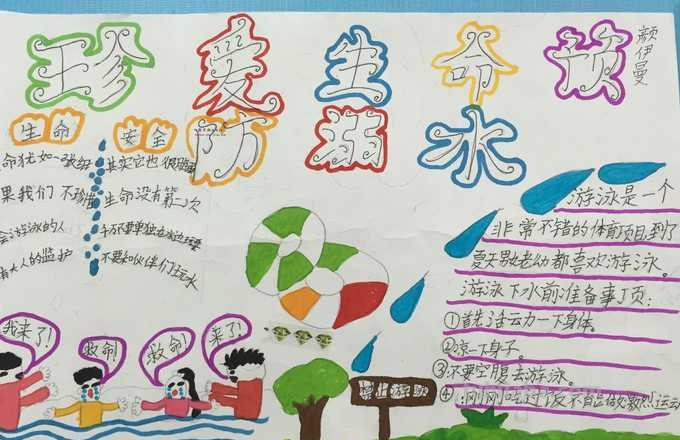 珍爱生命 预
防溺水
颜伊曼
生命
安全
命犹如一张纸
果我们不珍惜
会游泳的人
有大人的监护
其实它也很脆弱
生命没有第二次
千万不要单独在水边玩耍
不要和伙伴们玩水
我来了!
救命!
救命!
来了!
禁止游泳
游泳是一个
非常不错的体育项目到了
夏天男女老幼都喜欢游泳。
游泳下水前准备事项:
①首先活动一下身体。
②凉一下身子。
③不要空腹去游泳。
④刚刚吃过饭不宜做激烈运动